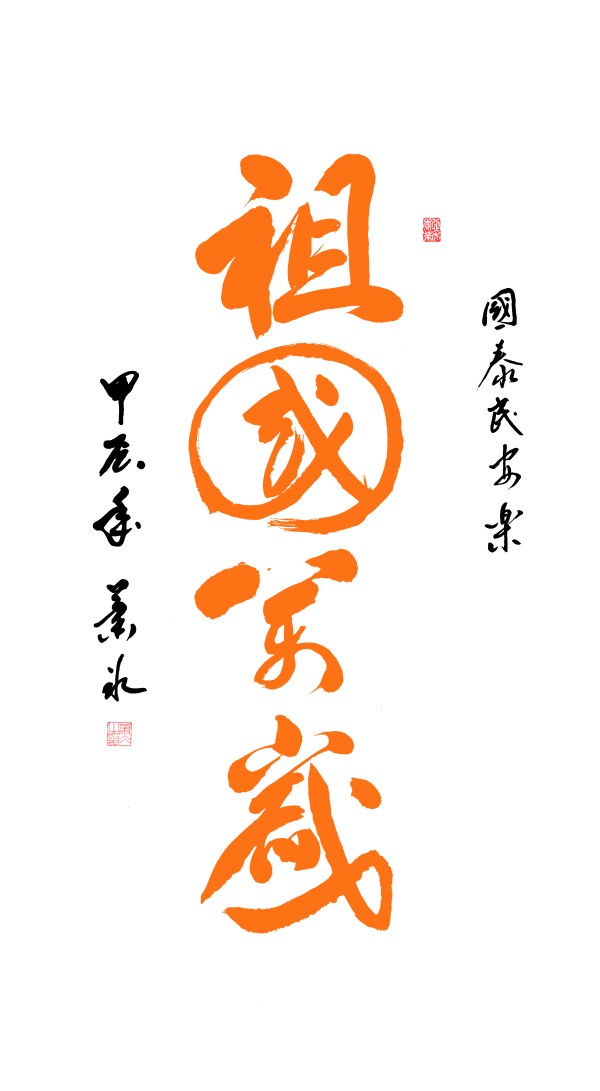 國泰民安樂
祖國萬歲
甲辰年 蕭冰